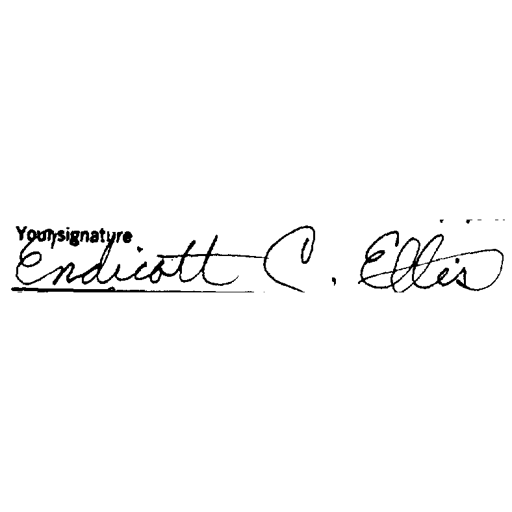 Your signature
Endicott C. Ellis